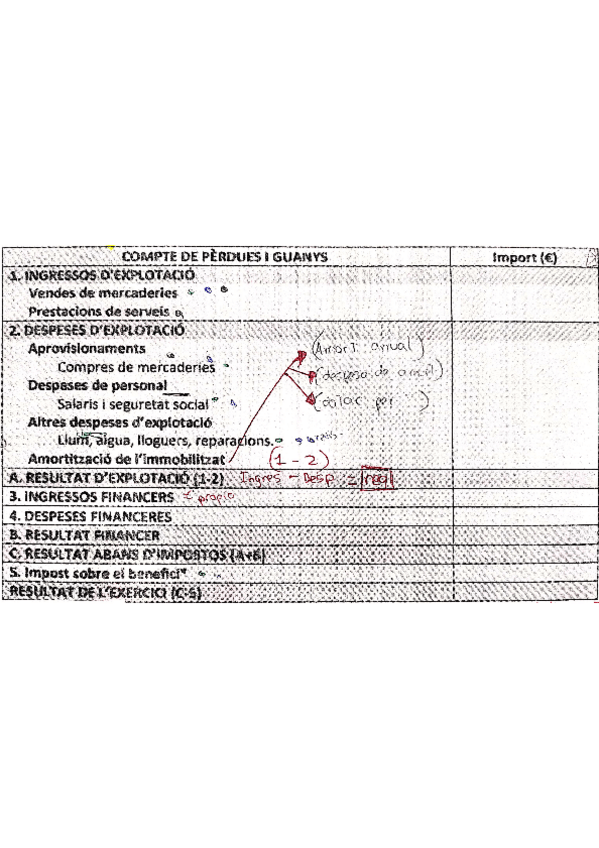 COMPTE DE PÈRDUES I GUANYS Import (€)
1. INGRESSOS D'EXPLOTACIÓ
Vendes de mercaderies
Prestacions de serveis
2. DESPESES D'EXPLOTACIÓ
Aprovisionaments (Amort. anual)
Compres de mercaderies
Despeses de personal
Salaris i seguretat social
Altres despeses d'explotació
Llum, aigua, lloguers, reparacions.
Amortització de l'immobilitzat (1-2)
A. RESULTAT D'EXPLOTACIÓ (1-2) Ingres - Desp =
3. INGRESSOS FINANCERS = propio
4. DESPESES FINANCERES
B. RESULTAT FINANCER
C. RESULTAT ABANS D'IMPOSTOS (A+B)
5. Impost sobre el benefici*
RESULTAT DE L'EXERCICI (C-5)